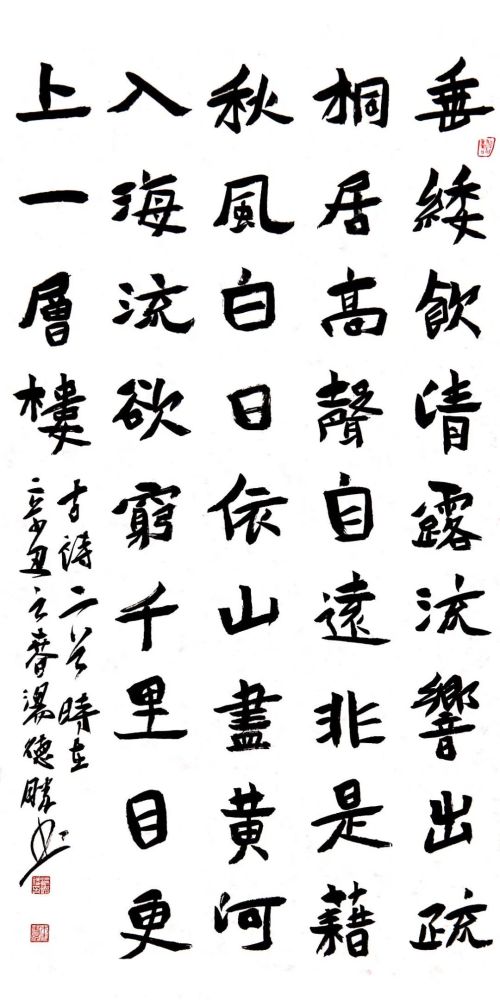 垂緌飲清露流響出疏
桐居高聲自遠非是藉
秋風白日依山盡黄河
入海流欲窮千里目更
上一層樓
古詩二首時在
辛丑之春湯德勝書